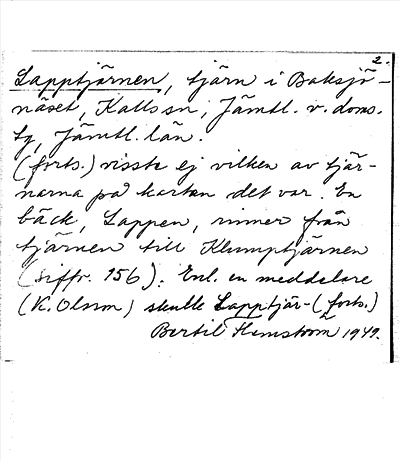 2.
Lapptjärnen, tjärn i Baksjö-
näset, Kalls sn, Jämtl. v. doms.
tg, Jämtl. län.
(forts.) visste ej vilken av tjär-
narna på kartan det var. En
bäck, Lappen, rinner från
tjärnen till Klumptjärnen
(siffr. 156). Enl. en meddelare
(K. Olsson) skulle Lapptjär-(forts.)
Bertil Flemström 1949.